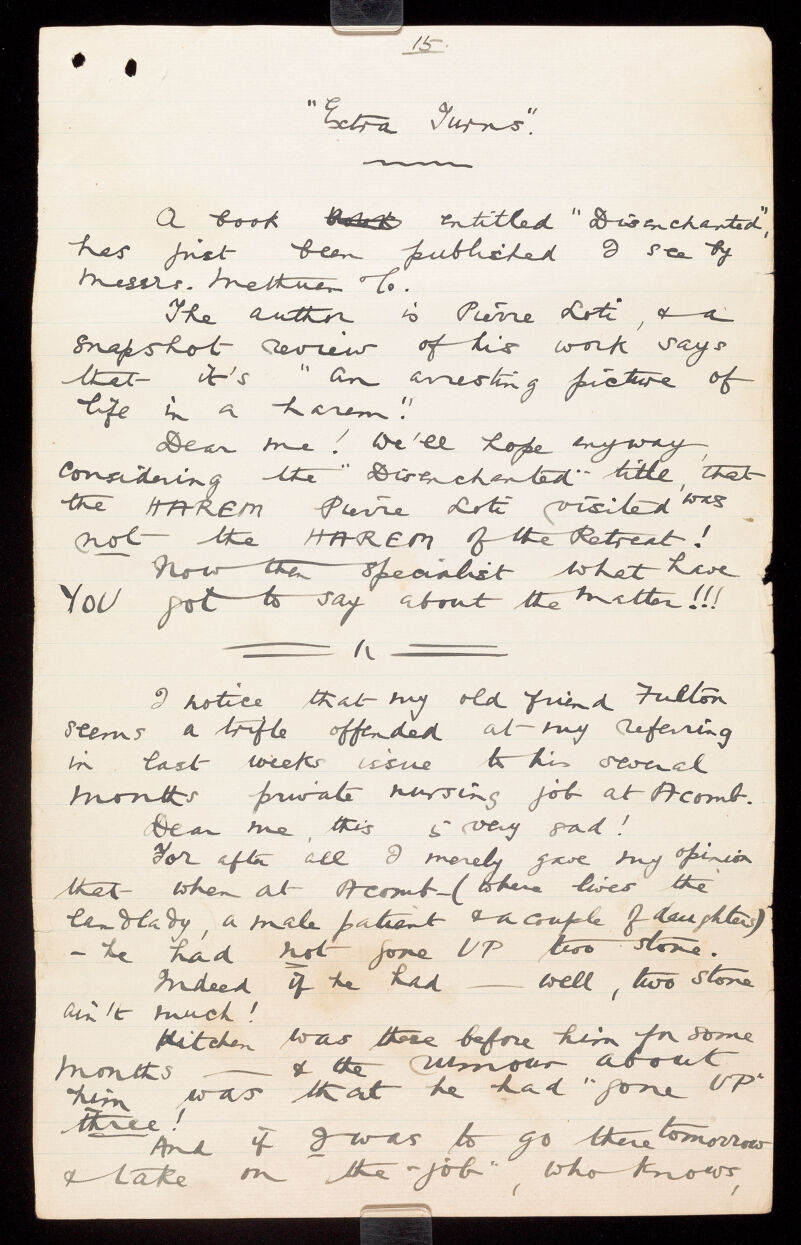 15.
"Extra Turns".
A book entitled "Disenchanted",
has just been published I see by
Messrs. Methuen & Co.
The author is Pierre Loti, & a
snapshot review of his work says
that it's "An arresting picture of
life in a harem"!
Dear me! We'll hope anyway,
considering the "Disenchanted" title, that
the HAREM Pierre Loti visited was
not the HAREM of the Retreat!
Now then specialist what have
YOU got to say about the matter!!!
I notice that my old friend Fulton
seems a trifle offended at my referring
in last weeks issue to his several
months private nursing job at Acomb.
Dear me, this is very sad!
For after all I merely gave my opinion
that when at Acomb - (where lives the
landlady, a male patient & a couple of daughters)
- he had not gone UP two stone.
Indeed if he had — well, two stone
ain't much!
Kitchen was there before him for some
months — & the rumour about
him was that he had "gone UP"
three!
And if I was to go there tomorrow
& take on the "job", who knows,